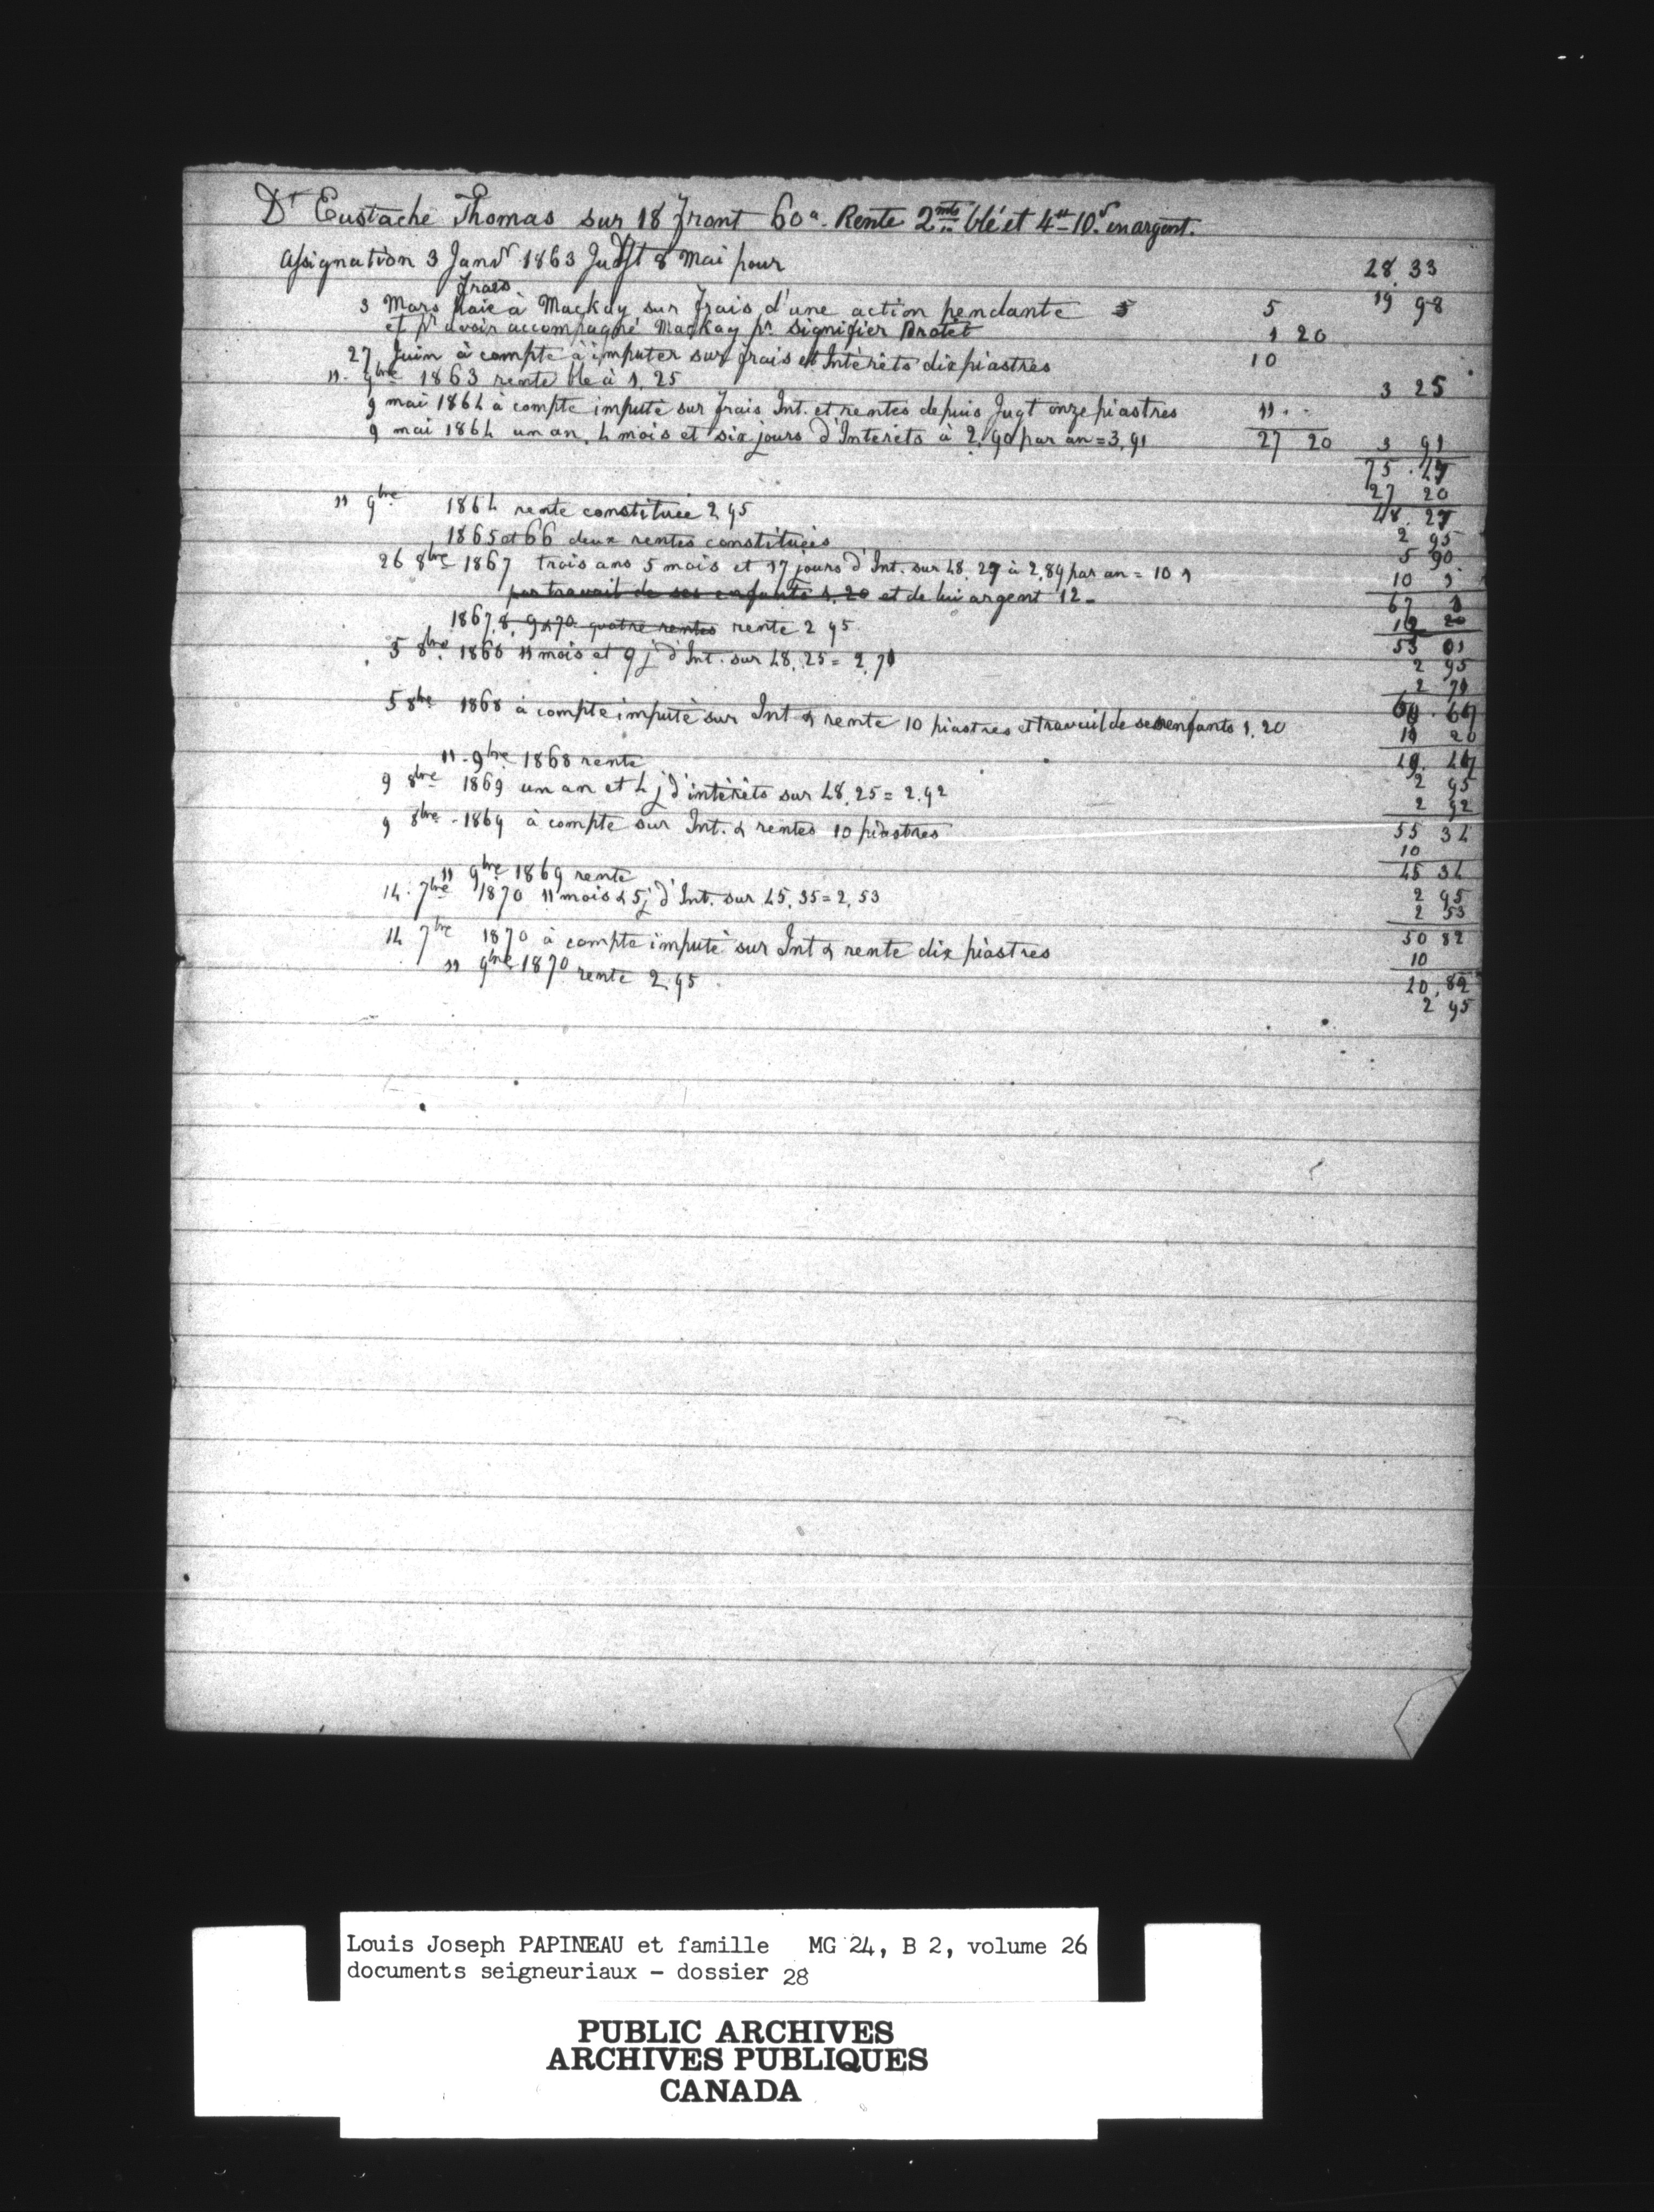 Dt Eustache Thomas sur 18 front 60a. Rente 2 mts blé et 4 # 10 s en argent.
Assignation 3 Janvr 1863 Judgt 8 Mai pour 28.33
frais
3 Mars païé à Mackay sur frais d'une action pendante 5 5 19 98
et pr avoir accompagné Mackay pr signifier Protêt 1 20
27 Juin à compte à imputer sur frais et Intérêts dix piastres 10
11. 9bre 1863 rente blé à 1,25 3 25
9 mai 1864 à compte imputé sur frais Int. et rentes depuis Jugt onze piastres 11 . .
9 mai 1864 un an, 4 mois et six jours d'Intérêts à 2,90 par an = 3,91 27 20 3 91
75.47
27 20
11 9bre 1864 rente constituée 2 95 48.27
1865 et 66 deux rentes constituées 2 95
5 90
26 8bre 1867 trois ans 5 mois et 17 jours d'Int. sur 48,27 à 2,89 par an = 10 1 10 1
par travail de ses enfants 1,20 et de lui argent 12 - 67 1
1867,8, 9 & 70 quatre rentes rente 2 95 20
5 8bre 1868 11 mois et 9 j d'Int. sur 48,25 = 2,71 53 01
2 95
2 71
5 8bre 1868 à compte imputé sur Int & rente 10 piastres et travail de ses enfants 1,20 67
11 20
11 - 9bre 1868 rente 49. 47
9 8bre 1869 un an et 4 j d'intérêts sur 48,25 = 2,92 2 95
2 92
9 8bre - 1869 à compte sur Int. & rentes 10 piastres 55 34
10
11 9bre 1869 rente 45 34
14. 7bre 1870 11 mois & 5 j d'Int. sur 45,35 = 2,53 2 95
2 53
14 7bre 1870 à compte imputé sur Int & rente dix piastres 50 82
10
11 9bre 1870 rente 2,95 40,82
2 95
Louis Joseph PAPINEAU et famille MG 24, B 2, volume 26
documents seigneuriaux - dossier 28
PUBLIC ARCHIVES
ARCHIVES PUBLIQUES
CANADA